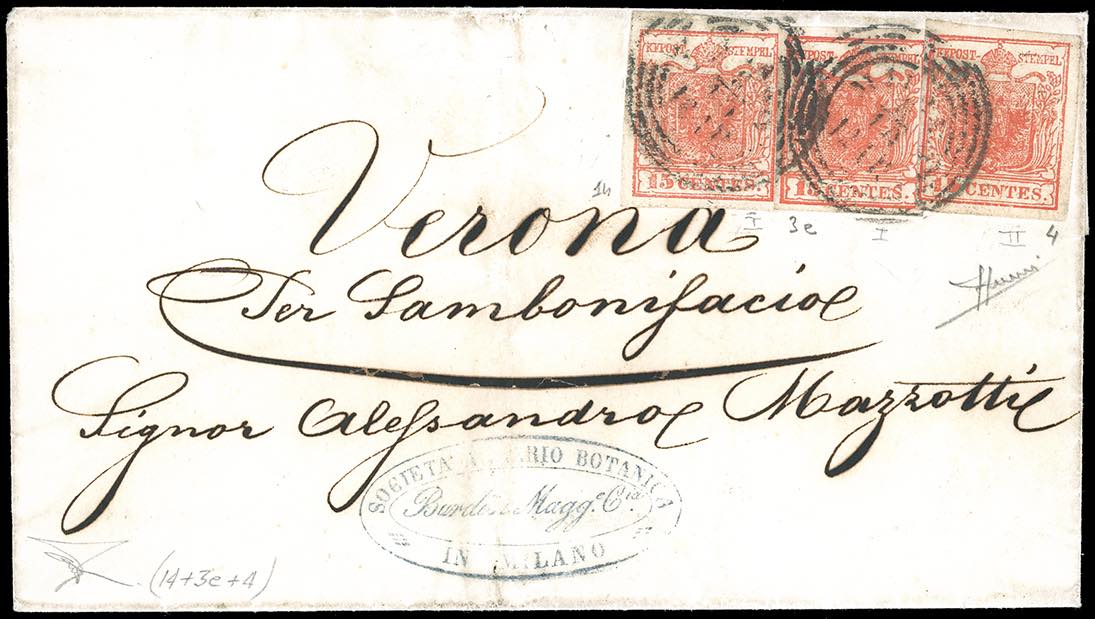 KKPOST- STEMPEL KKPOST- STEMPEL KKPOST- STEMPEL
15 CENTES. 15 CENTES. 15 CENTES.
14 I 3e I II 4
Verona
Per Sambonifacio
Signor Alessandro Mazzotti
SOCIETÀ BOTANICA
Burdin Magg.e C.ia
IN MILANO
(14+3e+4)